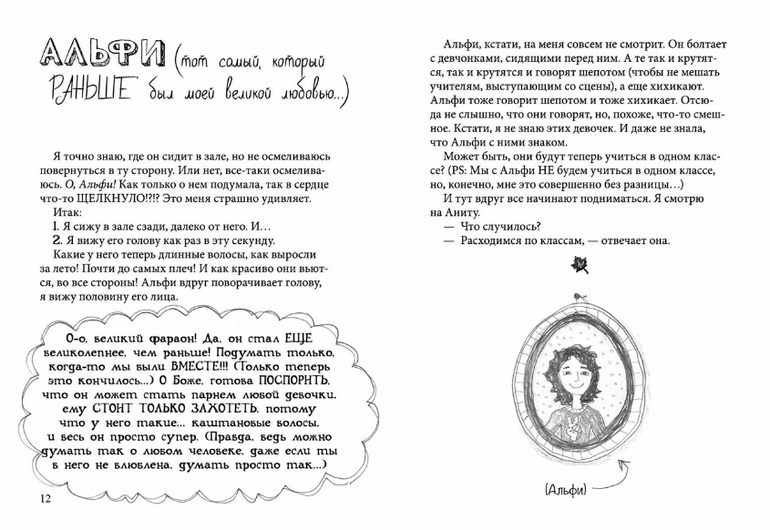 АЛЬФИ (тот самый, который
РАНЬШЕ был моей великой любовью...)
Я точно знаю, где он сидит в зале, но не осмеливаюсь
повернуться в ту сторону. Или нет, все-таки осмелива-
юсь. О, Альфи! Как только о нем подумала, так в сердце
что-то ЩЕЛКНУЛО!!?!? Это меня страшно удивляет.
Итак:
1. Я сижу в зале сзади, далеко от него. И…
2. Я вижу его голову как раз в эту секунду.
Какие у него теперь длинные волосы, как выросли
за лето! Почти до самых плеч! И как красиво они вьют-
ся, во все стороны! Альфи вдруг поворачивает голову,
я вижу половину его лица.
О-о, великий фараон! Да, он стал ЕЩЕ
великолепнее, чем раньше! Подумать только,
когда-то мы были ВМЕСТЕ!!! (Только теперь
это кончилось...) О Боже, готова ПОСПОРИТЬ,
что он может стать парнем любой девочки,
ему СТОИТ ТОЛЬКО ЗАХОТЕТЬ, потому
что у него такие... каштановые волосы,
и весь он просто супер. (Правда, ведь можно
думать так о любом человеке, даже если ты
в него не влюблена, думать просто так...)
12
Альфи, кстати, на меня совсем не смотрит. Он болтает
с девчонками, сидящими перед ним. А те так и крутят-
ся, так и крутятся и говорят шепотом (чтобы не мешать
учителям, выступающим со сцены), а еще хихикают.
Альфи тоже говорит шепотом и тоже хихикает. Отсю-
да не слышно, что они говорят, но, похоже, что-то смеш-
ное. Кстати, я не знаю этих девочек. И даже не знала,
что Альфи с ними знаком.
Может быть, они будут теперь учиться в одном клас-
се? (PS: Мы с Альфи НЕ будем учиться в одном классе,
но, конечно, мне это совершенно без разницы…)
И тут вдруг все начинают подниматься. Я смотрю
на Аниту.
— Что случилось?
— Расходимся по классам, — отвечает она.
(Альфи)